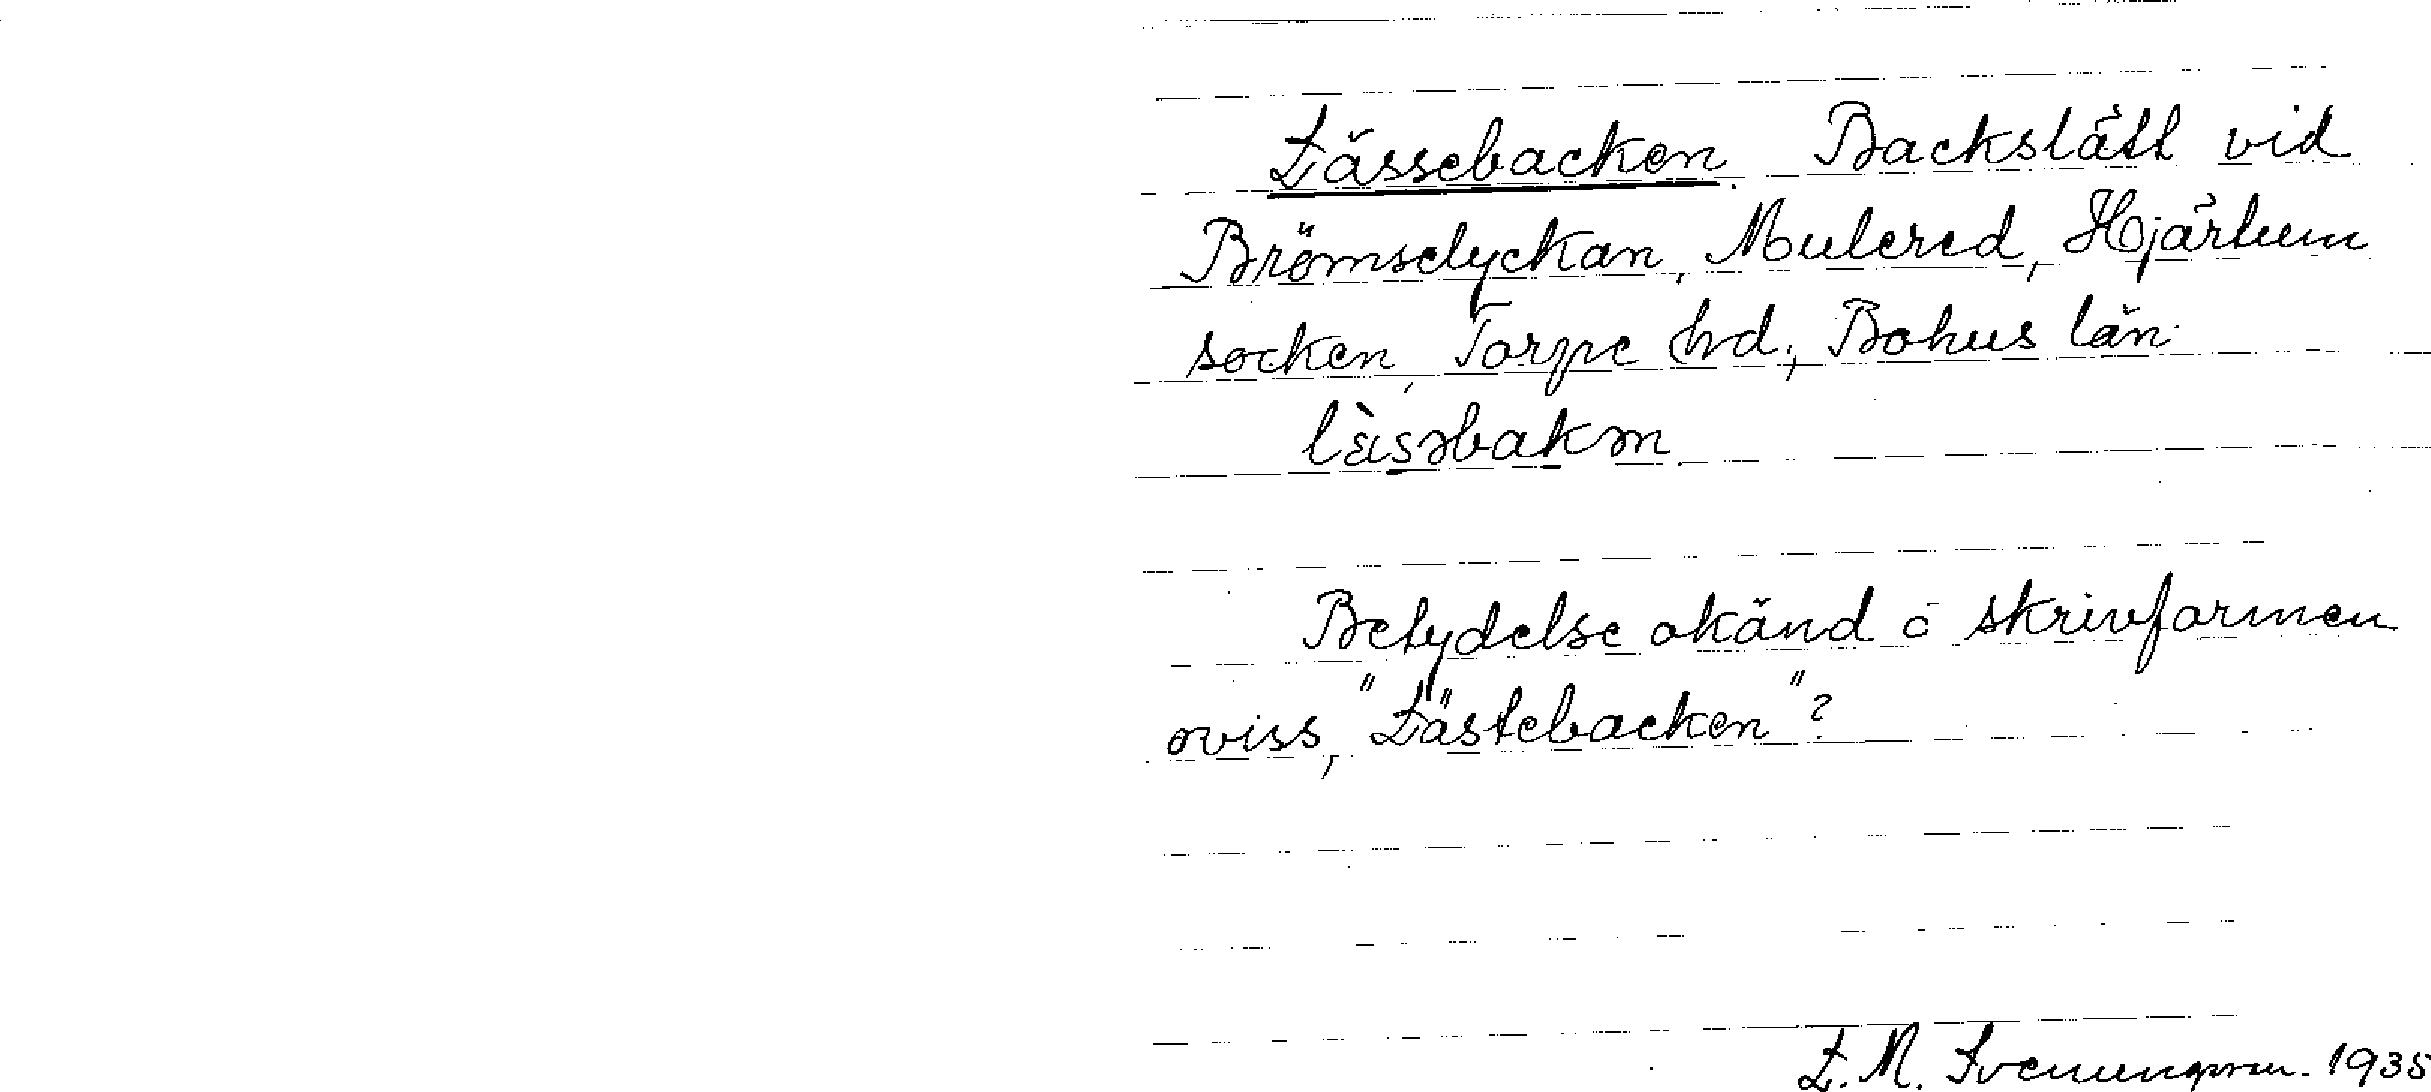 Lässebacken. Backslätt vid
Brömselyckan, Mulered, Hjärtum
socken, Torpe hrd., Bohus län.
lὰsəbakən.
Betydelse okänd o skrivformen
oviss, "Lästebacken"?
L. M. Svenungsson. 1935